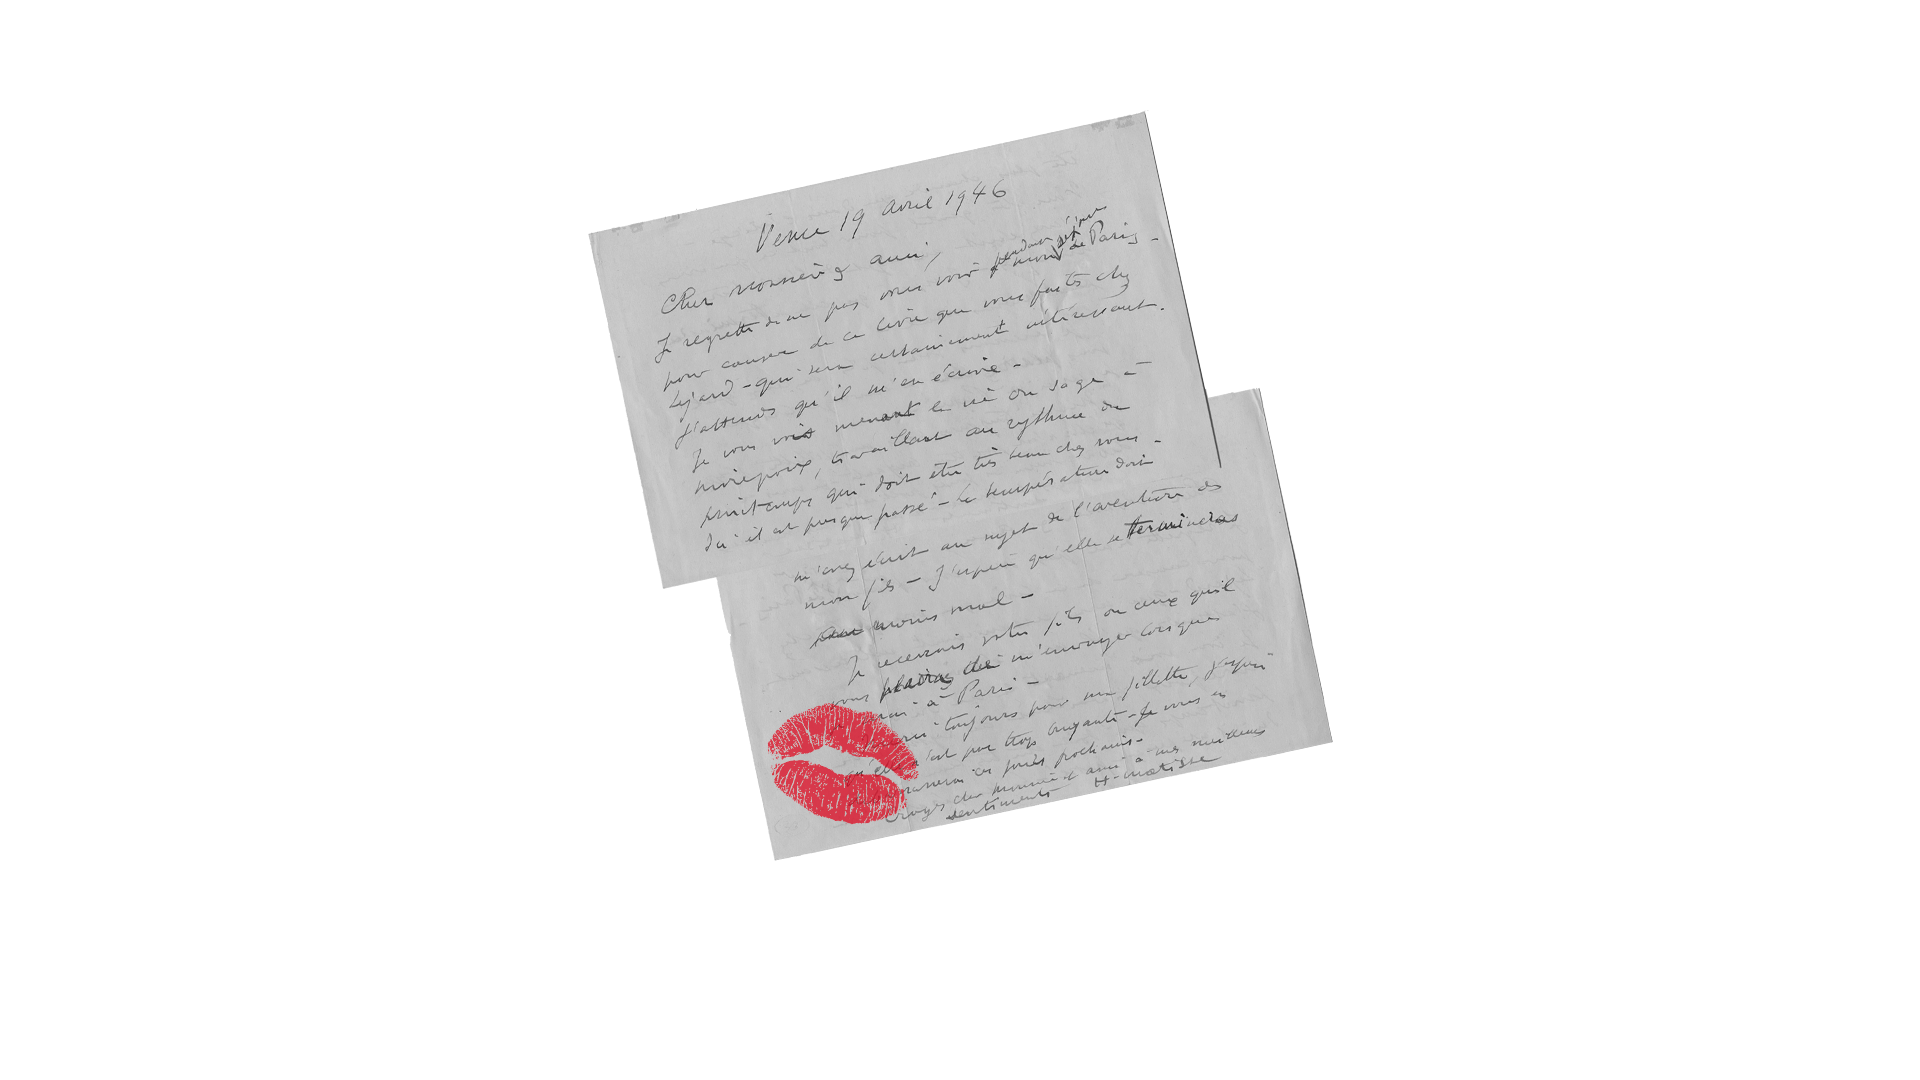 Vence 19 avril 1946
Cher monsieur & ami,
Je regrette de ne pas vous voir pendant mon séjour de Paris -
pour causer de ce livre que vous faites chez
Lejard - qui sera certainement intéressant.
J'attends qu'il m'en écrive -
Je vous vois menant la vie du sage à
mirepoix, travaillant au rythme du
printemps qui doit être très beau chez vous -
Ici il est presque passé - la température doit
m'avez écrit au sujet de l'aventure de
mon fils - J'espère qu'elle se terminera
moins mal -
Je recevrais votre fils ou ceux qu'il
vous plaira de m'envoyer lorsque
à Paris -
toujours pour ma fillette, j'espère
qu'elle n'est pas trop - Je vous en
ces jours prochains -
Croyez cher monsieur et ami à mes meilleurs
sentiments H. matisse